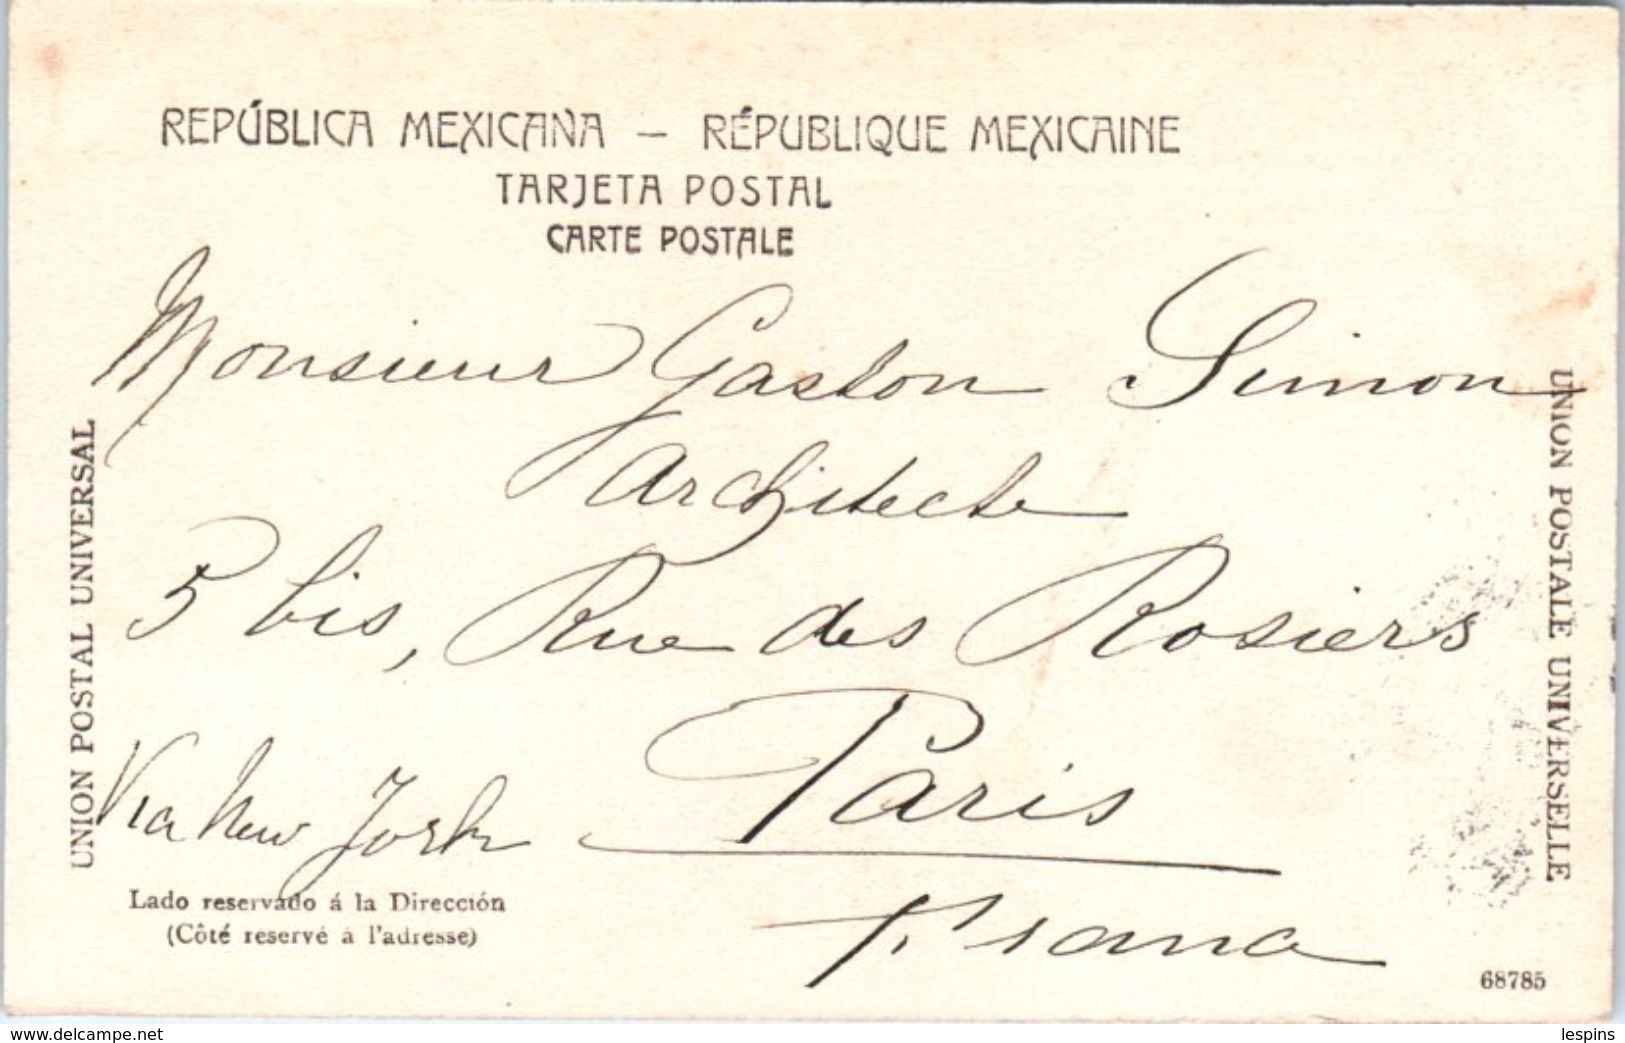 REPÚBLICA MEXICANA — RÉPUBLIQUE MEXICAINE
TARJETA POSTAL
CARTE POSTALE
Monsieur Gaston Simon
Architecte
5 bis, Rue des Rosiers
Paris
Via New York
Francia
UNION POSTAL UNIVERSAL
UNION POSTALE UNIVERSELLE
Lado reservado á la Dirección
(Côté reservé à l'adresse)
68785
www.delcampe.net
lespins